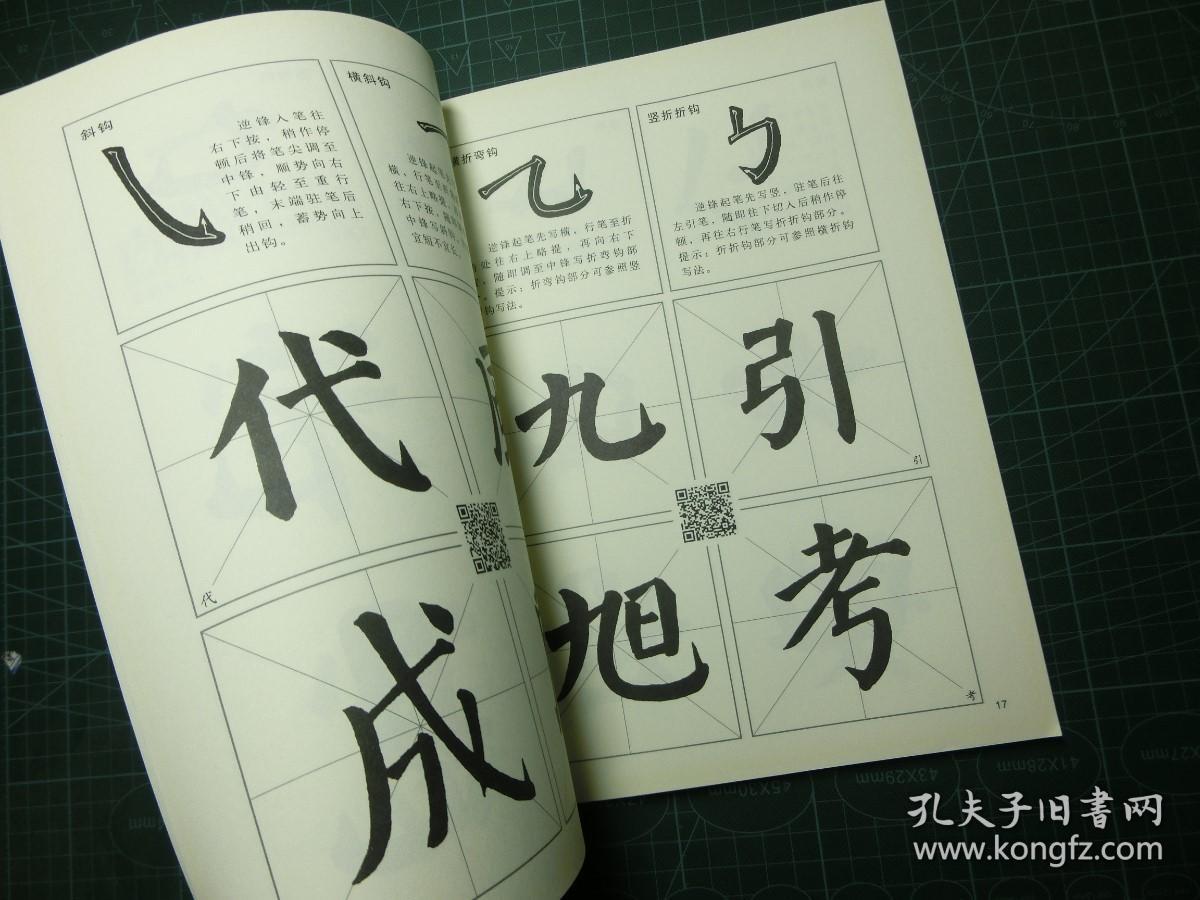 斜钩
逆锋入笔往
右下按，稍作停
顿后将笔尖调至
中锋，顺势向右
下由轻至重行
笔，末端驻笔后
稍回，蓄势向上
出钩。
代
代
成
横斜钩
逆锋起笔
横，行笔至
往右上略
右下按，随
中锋写斜
宜短不宜长。
横折弯钩
逆锋起笔先写横，行笔至折
处往右上略提，再向右下
，随即调至中锋写折弯钩部
。提示：折弯钩部分可参照竖
钩写法。
九
旭
竖折折钩
逆锋起笔先写竖，驻笔后往
左引笔，随即往下切入后稍作停
顿，再往右行笔写折折钩部分。
提示：折折钩部分可参照横折钩
写法。
引
引
考
考
17
43X29mm
41X28mm
45X30mm
孔夫子旧書网
www.kongfz.com